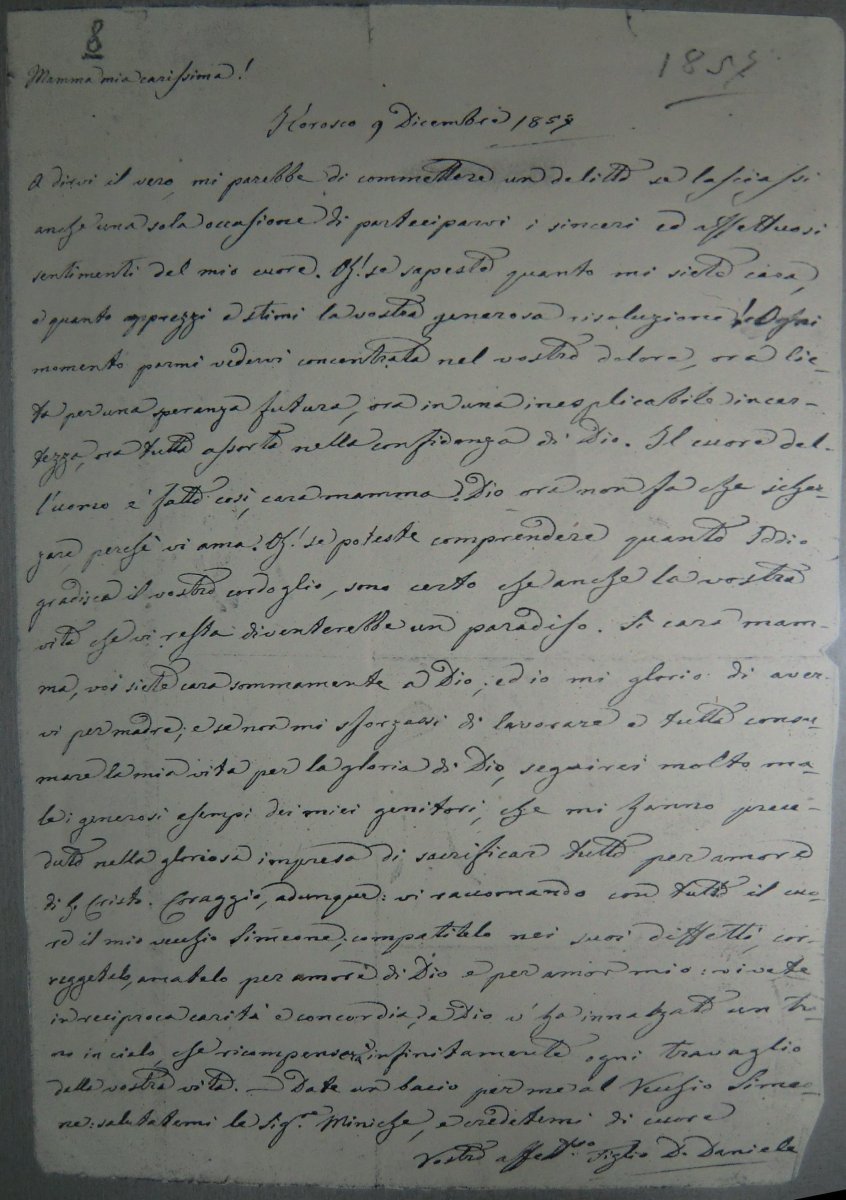 8
1857
Mamma mia carissima!
Korosco 9 Dicembre 1857
A dirvi il vero, mi parebbe di commettere un delitto se lasciassi
anche una sola occasione di parteciparvi i sinceri ed affettuosi
sentimenti del mio cuore. Oh! se sapeste quanto mi siete cara,
e quanto apprezzi e stimi la vostra generosa risoluzione! Ogni
momento parmi vedervi concentrata nel vostro dolore, ora lie-
ta per una speranza futura, ora in una inesplicabile incer-
tezza, ora tutta assorta nella confidenza di Dio. Il cuore del-
l'uomo è fatto così, cara mamma. Dio ora non fa che scher-
zare perchè vi ama. Oh! se poteste comprendere quanto Iddio
gradisca il vostro cordoglio, sono certo che anche la vostra
vita che vi resta diventerebbe un paradiso. Sì cara mam-
ma, voi siete cara sommamente a Dio; ed io mi glorio di aver-
vi per madre; e se non mi sforzassi di lavorare e tutta consu-
mare la mia vita per la gloria di Dio, seguirei molto ma-
le i generosi esempi dei miei genitori, che mi hanno prece-
duto nella gloriosa impresa di sacrificar tutto per amore
di G. Cristo. Coraggio, adunque: vi raccomando con tutto il cuo-
re il mio vecchio Simeone; compatitelo nei suoi diffetti, cor-
reggetelo, amatelo per amore di Dio e per amor mio: vivete
in reciproca carità e concordia, e Dio v'ha innalzato un tro-
no in cielo, che ricompenserà infinitamente ogni travaglio
della vostra vita. – Date un bacio per me al Vecchio Simeo-
ne: salutatemi le Sigre Miniche, e credetemi di cuore
Vostro affettmo figlio D. Daniele